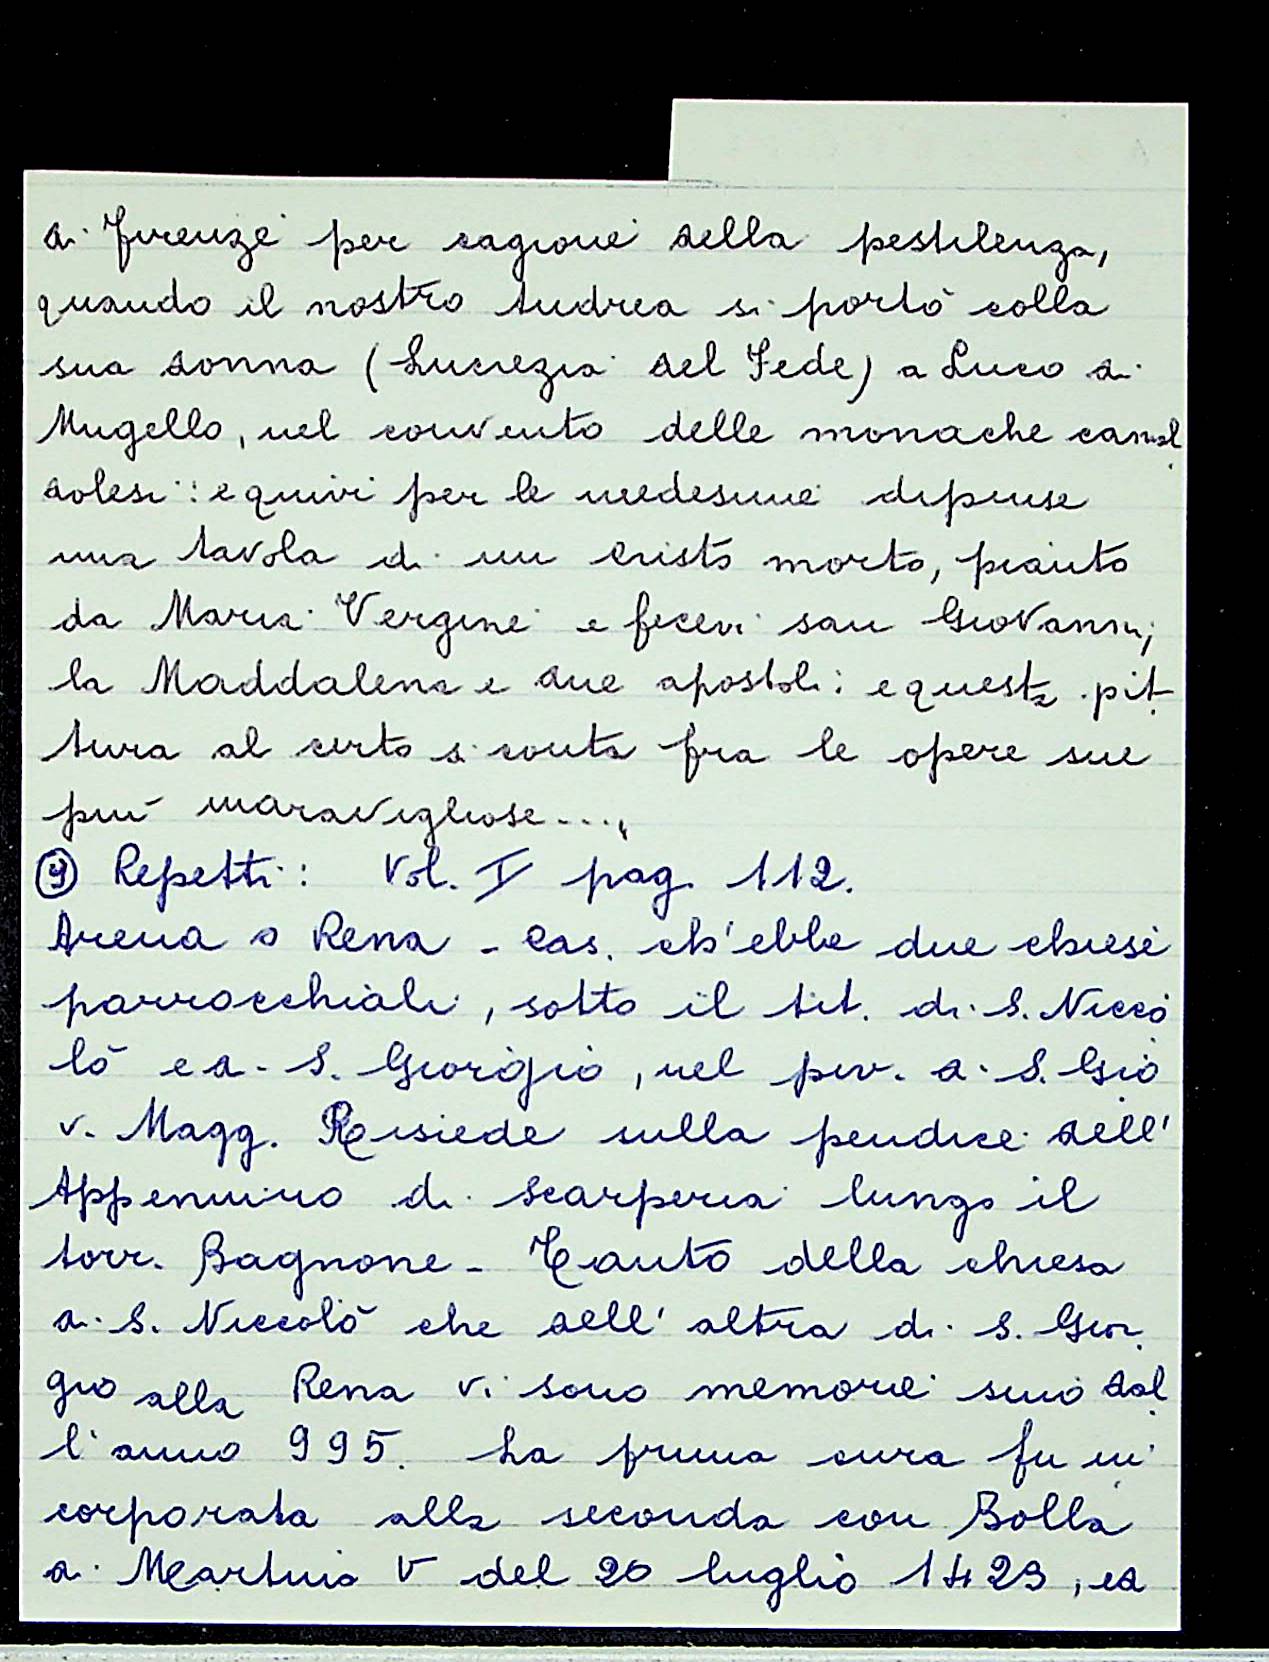 di Firenze per cagione della pestilenza,
quando il nostro Andrea si portò colla
sua donna (Lucrezia del Fede) a Luco di
Mugello, nel convento delle monache camal
dolesi: e quivi per le medesime dipinse
una tavola di un Cristo morto, pianto
da Maria Vergine e fecevi san Giovanni,
la Maddalena e due apostoli: e questa pit
tura al certo si conta fra le opere sue
più maravigliose....
⑨ Repetti: Vol. I pag. 112.
Arena o Rena - Cas. ch'ebbe due chiese
parrocchiali, sotto il tit. di S. Nicco
lò e di S. Giorgio, nel piv. di S. Gio
v. Magg. Risiede sulla pendice dell'
Appennino di Scarperia lungo il
torr. Bagnone - Tanto della chiesa
di S. Niccolò che dell'altra di S. Gior
gio alla Rena vi sono memorie sino dal
l'anno 995. La prima cura fu in
corporata alla seconda con Bolla
di Martino V del 20 luglio 1423, ed